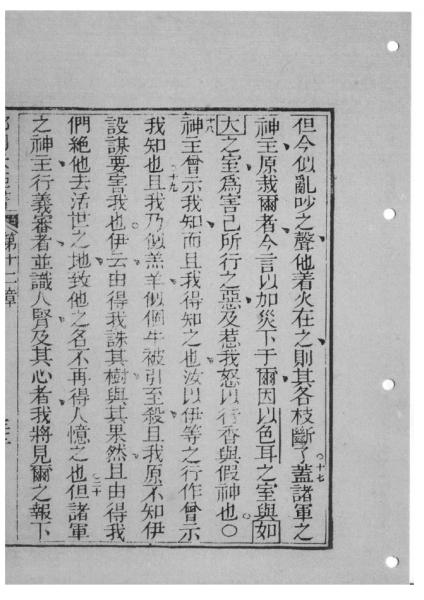 但今似亂吵之聲他着火在之則其各枝斷了十七蓋諸軍之
神主原栽爾者今言以加災下于爾因以色耳之室與如
大之室爲害己所行之惡及惹我怒以行香與假神也〇
十八神主曾示我知而且我得知之也汝以伊等之行作曾示
我知也十九且我乃似羔羊似個牛被引至殺且我原不知伊
設謀要害我也伊云由得我誅其樹與其果然且由得我
們絶他去活世之地致他之名不再得人憶之也二十但諸軍
之神主行義審者並識人腎及其心者我將見爾之報下
第十二章